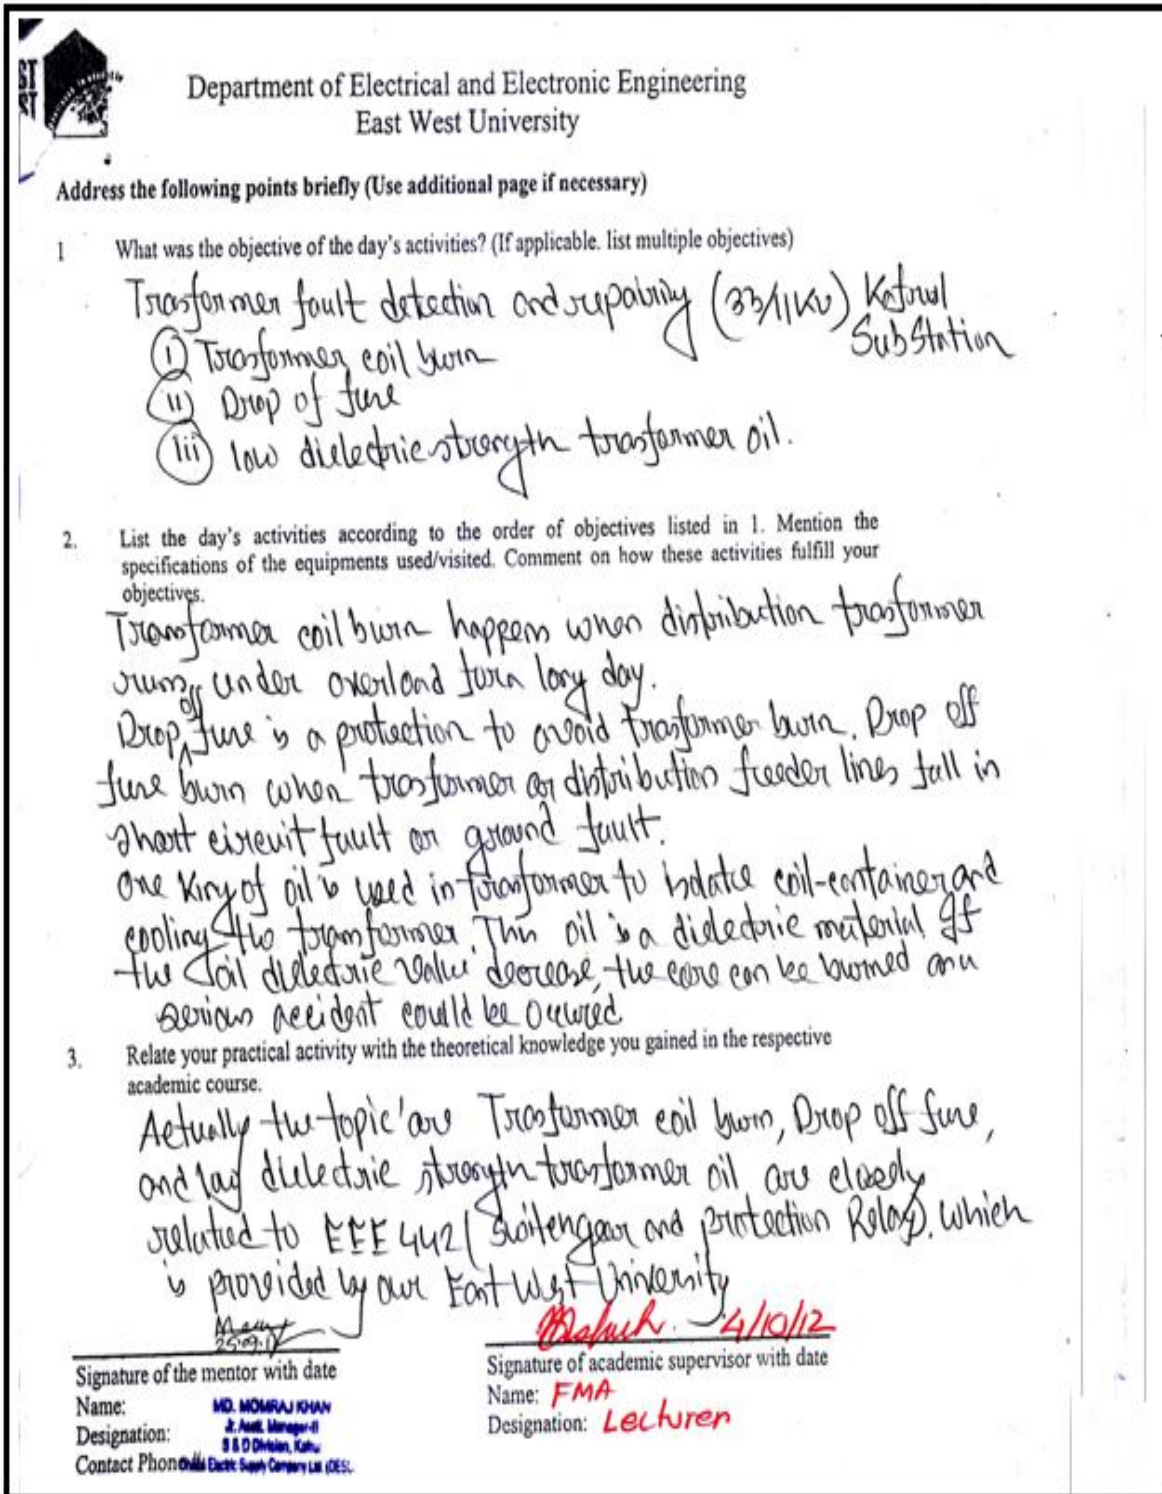 ST
ST
Department of Electrical and Electronic Engineering
East West University
Address the following points briefly (Use additional page if necessary)
1 What was the objective of the day's activities? (If applicable. list multiple objectives)
Trasformer fault detection and repairing (33/11KV)
SubStation
(i) Transformer coil burn
(ii) Drop of fuse
(iii) low dielectric strength trasformer oil.
2. List the day's activities according to the order of objectives listed in 1. Mention the
specifications of the equipments used/visited. Comment on how these activities fulfill your
objectives.
Transformer coil burn happens when distribution trasformer
runs under overload long day.
Drop off fuse is a protection to avoid trasformer burn. Drop off
fuse burn when trasformer or distribution feeder lines fall in
short circuit fault or ground fault.
One of oil is used in trasformer to coil-container and
cooling the transformer. This oil is a dielectric material If
the oil dielectric value decrease, the can be burned
serious accident could be
3. Relate your practical activity with the theoretical knowledge you gained in the respective
academic course.
Actually the topic are Trasformer coil burn, Drop off fuse,
and dielectric strength transformer oil are closely
related to EEE 442 ( and protection Relay). which
is provided by our East West University
25.09.12
4/10/12
Signature of the mentor with date
Signature of academic supervisor with date
Name: MD. MOMRAJ KHAN
Name: FMA
Designation: Jt. Asst. Manager-II
Designation: Lecturer
S & D Division,
Contact Phone Electric Supply Company Ltd. (DESC